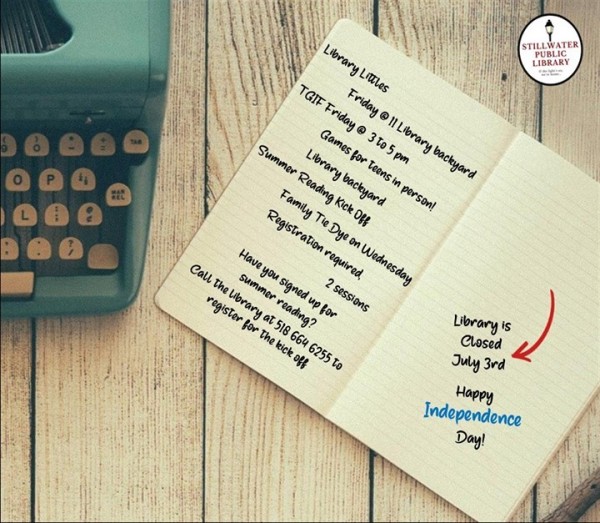 STILLWATER
PUBLIC
LIBRARY
Library Littles
Friday @ 11 Library backyard
TGIF Friday @ 3 to 5 pm
Games for teens in person!
Library backyard
Summer Reading Kick Off
Family Tie Dye on Wednesday
Registration required
2 sessions
Have you signed up for
summer reading?
Call the Library at 518 664 6255 to
register for the kick off
Library is
Closed
July 3rd
Happy
Independence
Day!
TAB
O P
MAR
REL
L